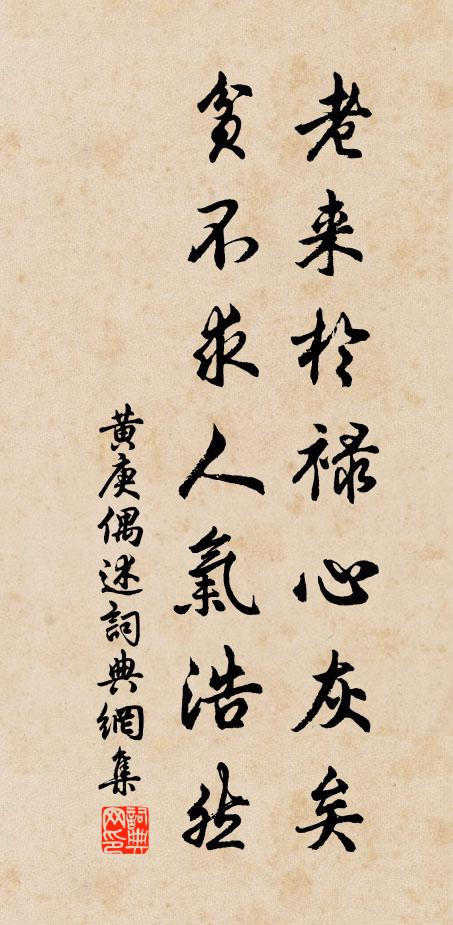 老来於禄心灰矣
貧不求人氣浩然
黄庚偶述詞典網集
詞典网印